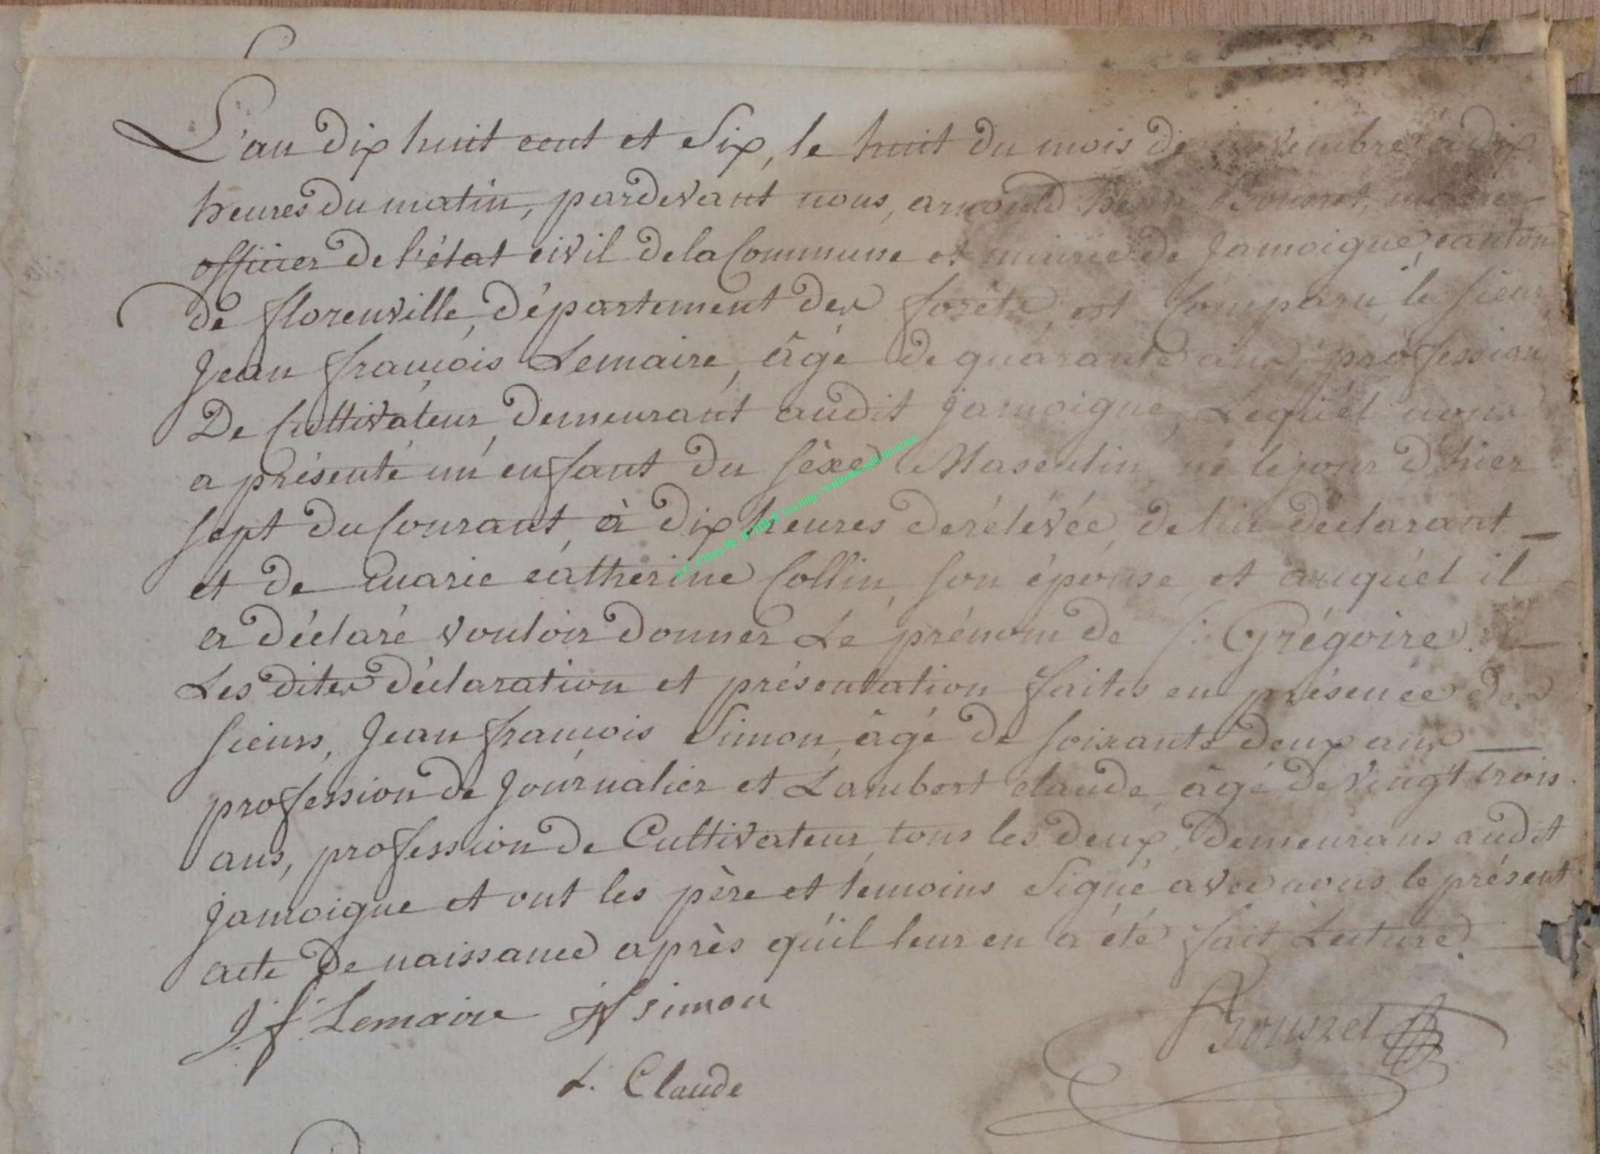 L'an dix huit cent et Six, le huit du mois de novembre à dix
heures du matin, pardevant nous, arnould henri Rousset, maire
officier de l'état civil de la Commune et mairie de Jamoigne, canton
de florenville, département des forêts, est Comparu le sieur
Jean françois Lemaire, âgé de quarante ans, profession
De Cultivateur, demeurant audit jamoigne, Lequel nous
a présenté un enfant du sèxe Masculin, né le jour d'hier
sept du Courant, à dix heures de rélévée, de lui déclarant
et de Marie catherine Collin, son épouse, et auquel il
a déclaré vouloir donner Le prénom de Grégoire.
Les dites déclaration et présentation faites en présence des
sieurs, Jean françois Simon, âgé de soixante deux ans
profession de Journalier et Lambert claude, âgé de vingt trois
ans, profession de Cultivateur, tous les deux demeurans audit
Jamoigne et ont les père et témoins Signé avec nous le présent
acte de naissance après qu'il leur en a été fait Lecture.
J. f. Lemaire jf simon
L. Claude